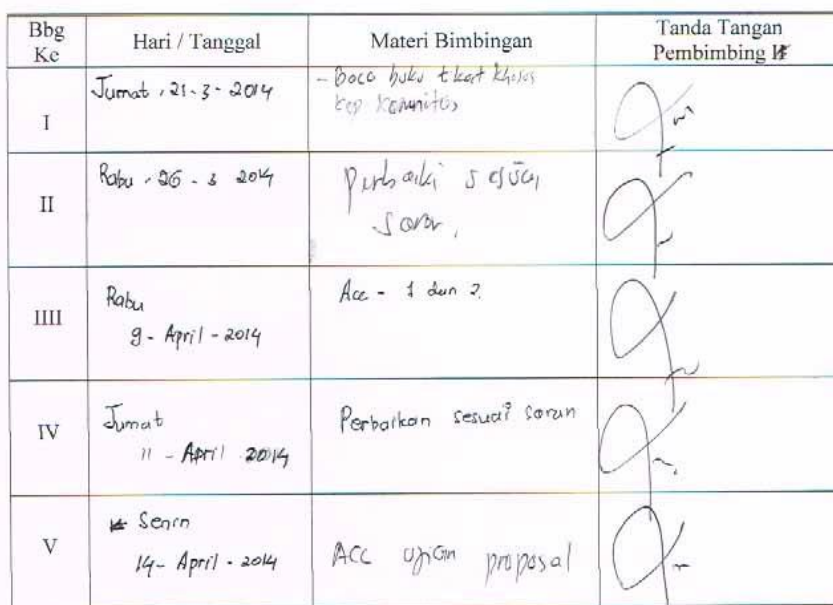 Bbg Ke
Hari / Tanggal
Materi Bimbingan
Tanda Tangan
Pembimbing II
I
Jumat, 21-3-2014
- Baca buku tkat khusus
kep komunitas
II
Rabu, 26-3 2014
Perbaiki sesuai
saran,
IIII
Rabu
9-April-2014
Acc - 1 dan 2.
IV
Jumat
11-April 2014
Perbaikan sesuai saran
V
Senin
14-April-2014
ACC ujian proposal